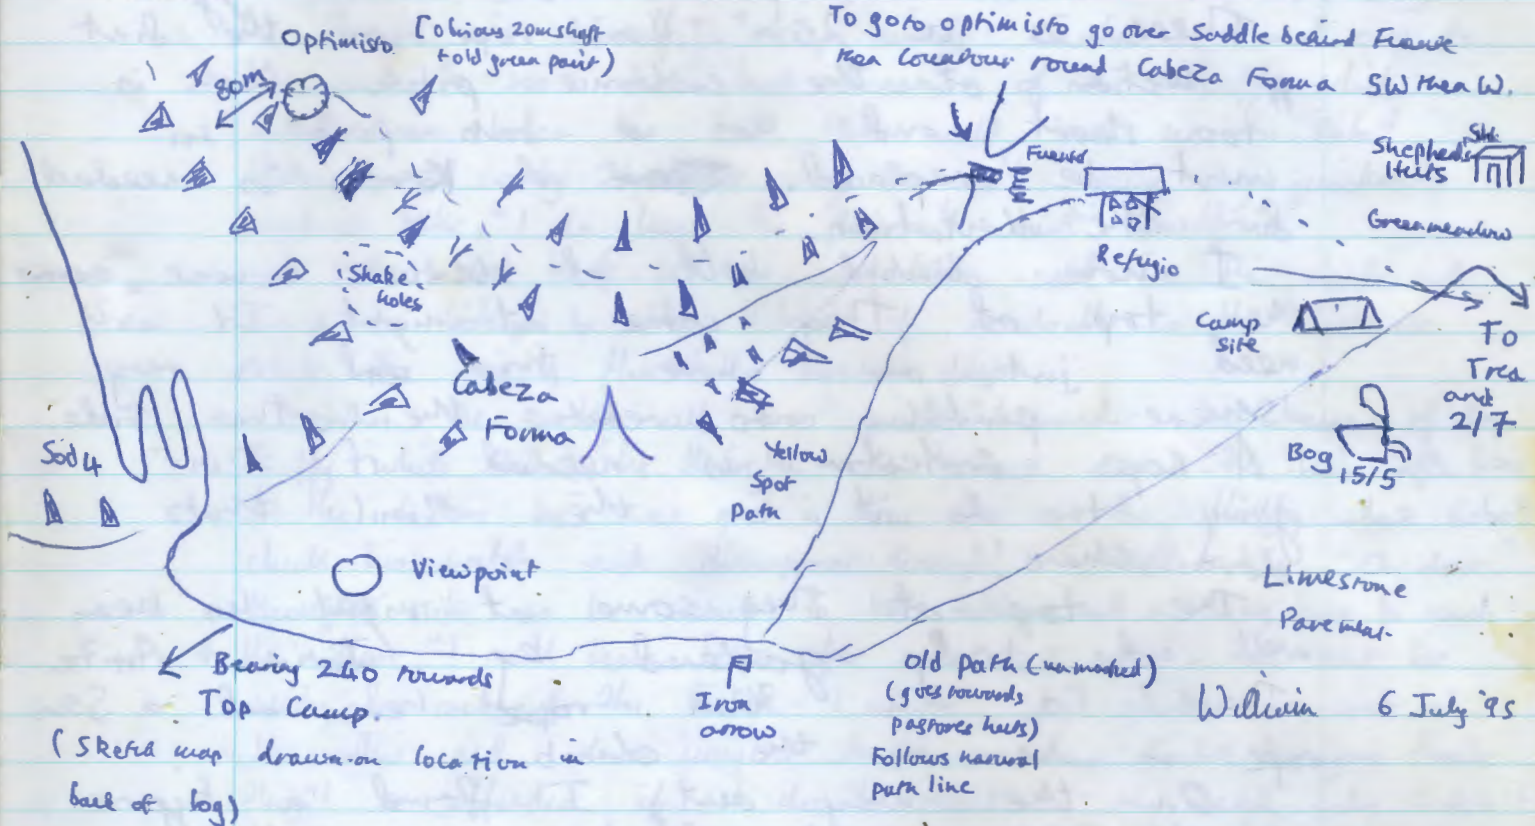 Optimisto
[obvious 20m shaft
+ old green paint)
To go to optimisto go over Saddle behind Fuente
then Contour round Cabeza Forma SW then W.
80m
Fuente
Shepherd's
Huts
Green meadow
Refugio
Shake
holes
Camp
site
To
Trea
and
2/7
Cabeza
Forma
Sod 4
Yellow
Spot
Path
Bog
15/5
Viewpoint
Limestone
Pavement
Bearing 240 towards
Top Camp.
(Sketch map drawn on location in
back of log)
Iron
arrow
Old path (unmarked)
(goes towards
pastores huts)
Follows natural
path line
William 6 July '95